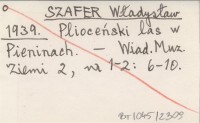 SZAFER Władysław
1939. Plioceński las w
Pieninach. — Wiad. Muz.
Ziemi 2, nr 1-2: 6-10.
Br 1045/2309